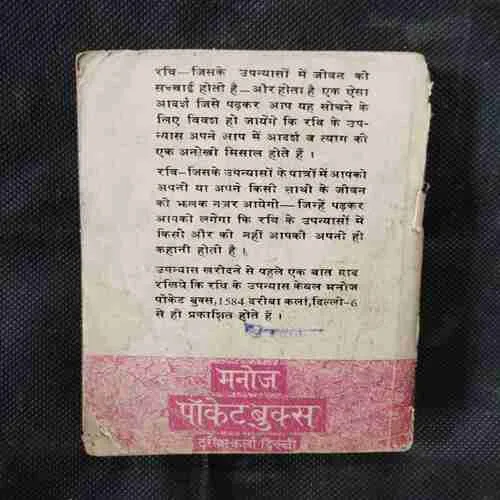 रवि—जिसके उपन्यासों में जीवन की
सच्चाई होती है—और होता है एक ऐसा
आदर्श जिसे पढ़कर आप यह सोचने के
लिए विवश हो जायेंगे कि रवि के उप-
न्यास अपने आप में आदर्श व त्याग की
एक अनोखी मिसाल होते हैं ।
रवि—जिसके उपन्यासों के पात्रों में आपको
अपनी या अपने किसी साथी के जीवन
की झलक नजर आयेगी—जिन्हें पढ़कर
आपको लगेगा कि रवि के उपन्यासों में
किसी और की नहीं आपकी अपनी ही
कहानी होती है ।
उपन्यास खरीदने से पहले एक बात याद
रखिये कि रवि के उपन्यास केवल मनोज
पॉकेट बुक्स, 1584 दरीबा कलां, दिल्ली-6
से ही प्रकाशित होते हैं ।
मनोज
पॉकेट बुक्स
दरीबा कलां दिल्ली